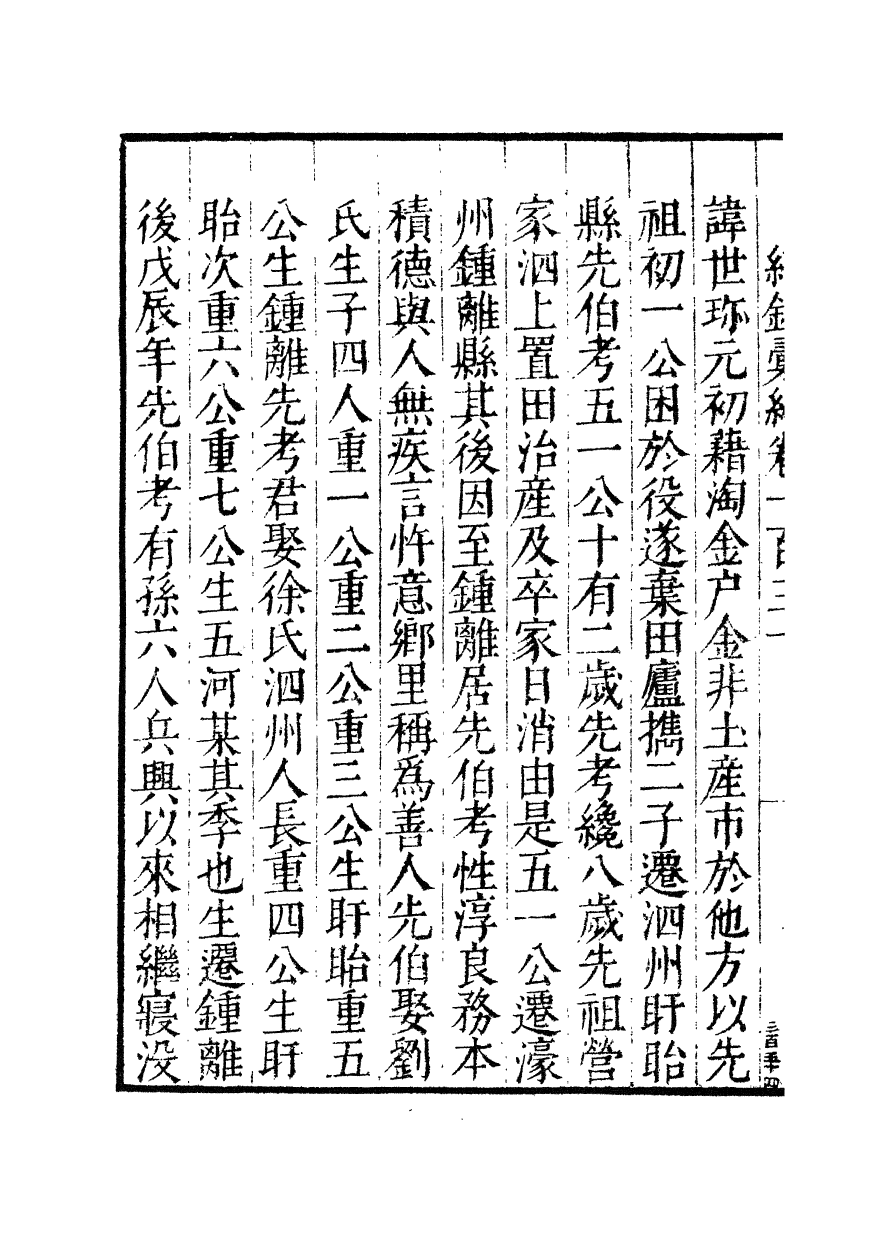 紀錄彙編卷一百三十
諱世珎元初藉淘金户金非土産市於他方以先
祖初一公困於役遂棄田廬攜二子遷泗州盱眙
縣先伯考五一公十有二歲先考纔八歲先祖營
家泗上置田治産及卒家日消由是五一公遷濠
州鍾離縣其後因至鍾離居先伯考性淳良務本
積德與人無疾言忤意鄉里稱爲善人先伯娶劉
氏生子四人重一公重二公重三公生盱眙重五
公生鍾離先考君娶徐氏泗州人長重四公生盱
眙次重六公重七公生五河某其季也生遷鍾離
後戊辰年先伯考有孫六人兵興以來相繼寢没